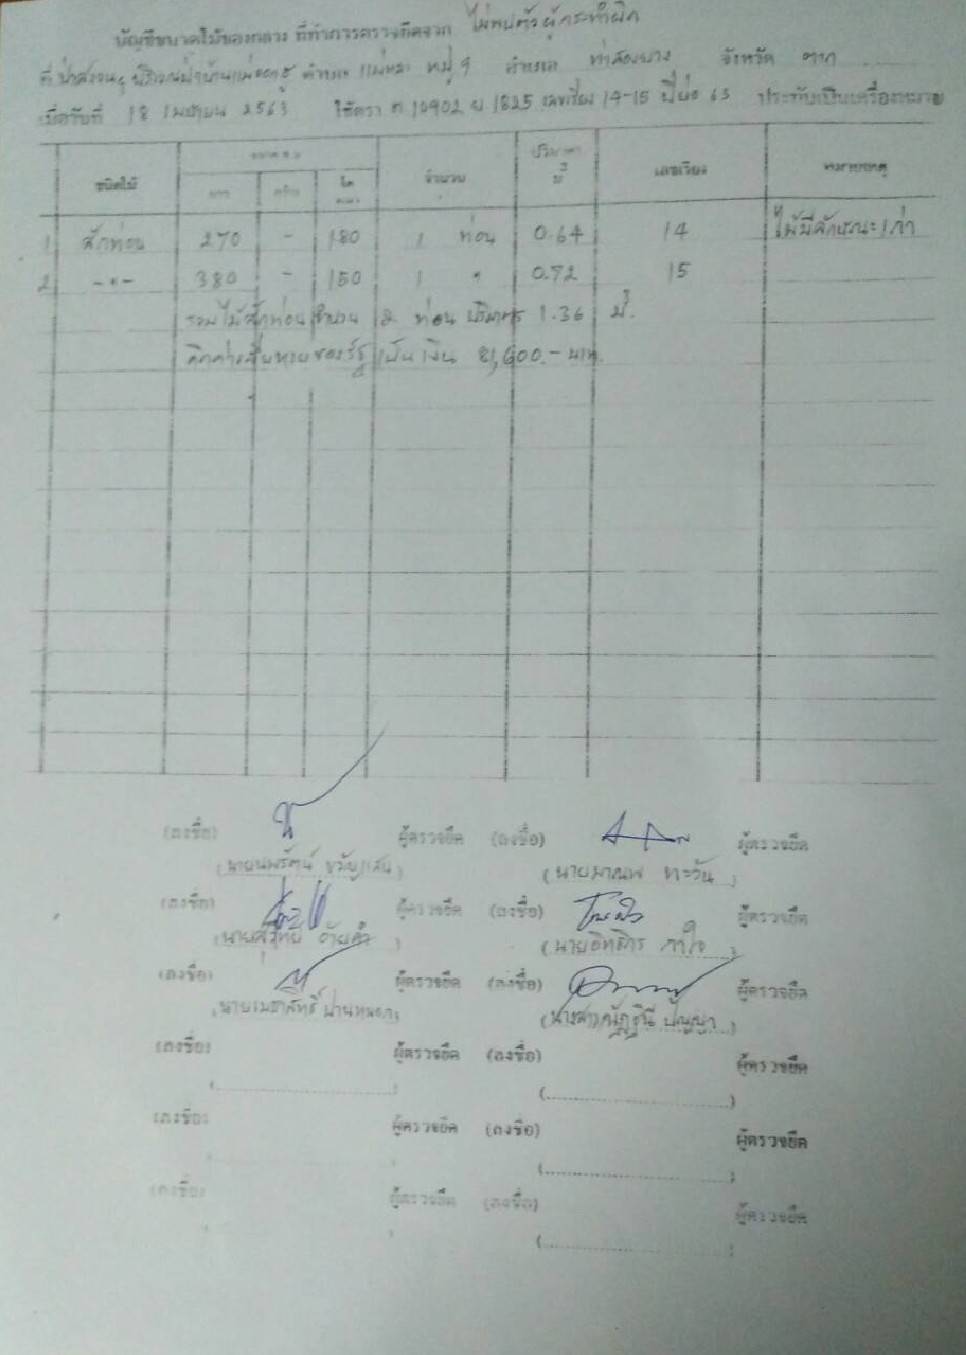 บัญชีขนาดไม้ของกลาง ที่ทำการตรวจยึดจาก ไม่พบตัวผู้กระทำผิด
ที่ ป่าสงวนฯ ตำบล แม่หละ หมู่ 9 อำเภอ ท่าสองยาง จังหวัด ตาก
เมื่อวันที่ 18 เมษายน 2563 ใช้ตรา ต 10902 ย 1825 เลขเรียง 14-15 ปีย่อ 63 ประทับเป็นเครื่องหมาย
ชนิดไม้ ยาว กว้าง โต จำนวน ปริมาตร ม3 เลขเรียง หมายเหตุ
1 สักท่อน 270 - 180 1 ท่อน 0.64 14 ไม้มีลักษณะเก่า
2 -"- 380 - 150 1 " 0.72 15
รวมไม้สักท่อน จำนวน 2 ท่อน ปริมาตร 1.36 ม3.
คิดค่าเสียหายของรัฐ เป็นเงิน 81,600.- บาท.
(ลงชื่อ) ผู้ตรวจยึด (ลงชื่อ) ผู้ตรวจยึด
(นายนพรัตน์ ขวัญแสน) (นายมาณพ ทะวัน)
(ลงชื่อ) ผู้ตรวจยึด (ลงชื่อ) ผู้ตรวจยึด
(นายสุริทย์ อ้ายคำ) (นายอิทธิกร กาใจ)
(ลงชื่อ) ผู้ตรวจยึด (ลงชื่อ) ผู้ตรวจยึด
(นายเมธาสิทธิ์) (นางสาวณัฏฐินี ปัญญา)
(ลงชื่อ) ผู้ตรวจยึด (ลงชื่อ) ผู้ตรวจยึด
(ลงชื่อ) ผู้ตรวจยึด (ลงชื่อ) ผู้ตรวจยึด
(ลงชื่อ) ผู้ตรวจยึด (ลงชื่อ) ผู้ตรวจยึด